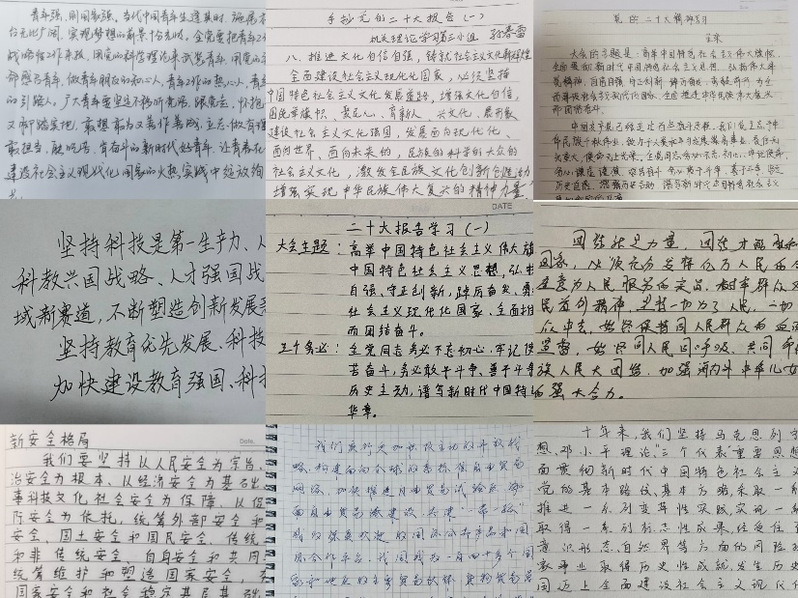 青年强，则国家强。当代中国青年生逢其时，施展才
台无比广阔，实现梦想的前景无比光明。全党要把青年工作
战略性工作来抓，用党的科学理论武装青年，用党的初
都感召青年，做青年朋友的知心人、青年工作的热心人、青年
的引路人。广大青年要坚定不移听党话、跟党走，怀抱
又脚踏实地，敢想敢为又善作善成，立志做有理
敢担当、能吃苦、肯奋斗的新时代好青年，让青春在
建设社会主义现代化国家的火热实践中绽放绚
手抄党的二十大报告（一）
机关理论学习第三小组 孙春雷
八、推进文化自信自强，铸就社会主义文化新辉煌
全面建设社会主义现代化国家，必须坚持
中国特色社会主义文化发展道路，增强文化自信，
围绕举旗帜、聚民心、育新人、兴文化、展形象
建设社会主义文化强国，发展面向现代化、
面向世界、面向未来的，民族的科学的大众的
社会主义文化，激发全民族文化创新创造活力
增强实现中华民族伟大复兴的精神力量。
党的二十大精神学习
大会的主题是：高举中国特色社会主义伟大旗帜，
全面贯彻新时代中国特色社会主义思想，弘扬伟大建
党精神，自信自强、守正创新，踔厉奋发、勇毅前行，为全
面建设社会主义现代化国家、全面推进中华民族伟大复兴
而团结奋斗。
坚持科技是第一生产力、人
科教兴国战略、人才强国战
域新赛道，不断塑造创新发展
坚持教育优先发展、科技
加快建设教育强国、科技
DATE
二十大报告学习（一）
大会主题：高举中国特色社会主义伟大旗
中国特色社会主义思想，弘扬
自强、守正创新，踔厉奋发、勇
社会主义现代化国家、全面推
而团结奋斗。
三个务必：全党同志务必不忘初心、牢记使
苦奋斗，务必敢于斗争、善于斗争
历史主动，谱写新时代中国特
华章。
DATE
团结就是力量，团结才能胜利
国家，必须充分发挥亿万人民的创
民首创精神，坚持一切为了人民、一切
众中去，始终保持同人民群众的血肉
监督，始终同人民同呼吸、共同命
族人民大团结，加强海内外中华儿女
的强大合力。
新安全格局
Date.
我们要坚持以人民安全为宗旨、
治安全为根本、以经济安全为基础
事科技文化社会安全为保障、以促
际安全为依托，统筹外部安全和
安全、国土安全和国民安全、传统
和非传统安全、自身安全和共同
统筹维护和塑造国家安全，夯
国家安全和社会稳定基层基础
我们实行更加积极主动的开放战
略，构建面向全球的高标准自由贸易
网络，加快推进自由贸易试验区、海
南自由贸易港建设，共建“一带一路”
成为深受欢迎的国际公共产品和国
际合作平台。我国成为一百四十多个国
家和地区的主要贸易伙伴，货物贸易总
十年来，我们坚持马克思列宁
想、邓小平理论、“三个代表”重要思想
面贯彻新时代中国特色社会主义
党的基本路线、基本方略，采取一系
推进一系列变革性实践，实现一系
取得一系列标志性成果，经受住了
意识形态、自然界等方面的风险挑
家事业取得历史性成就、发生历史
国迈上全面建设社会主义现代化